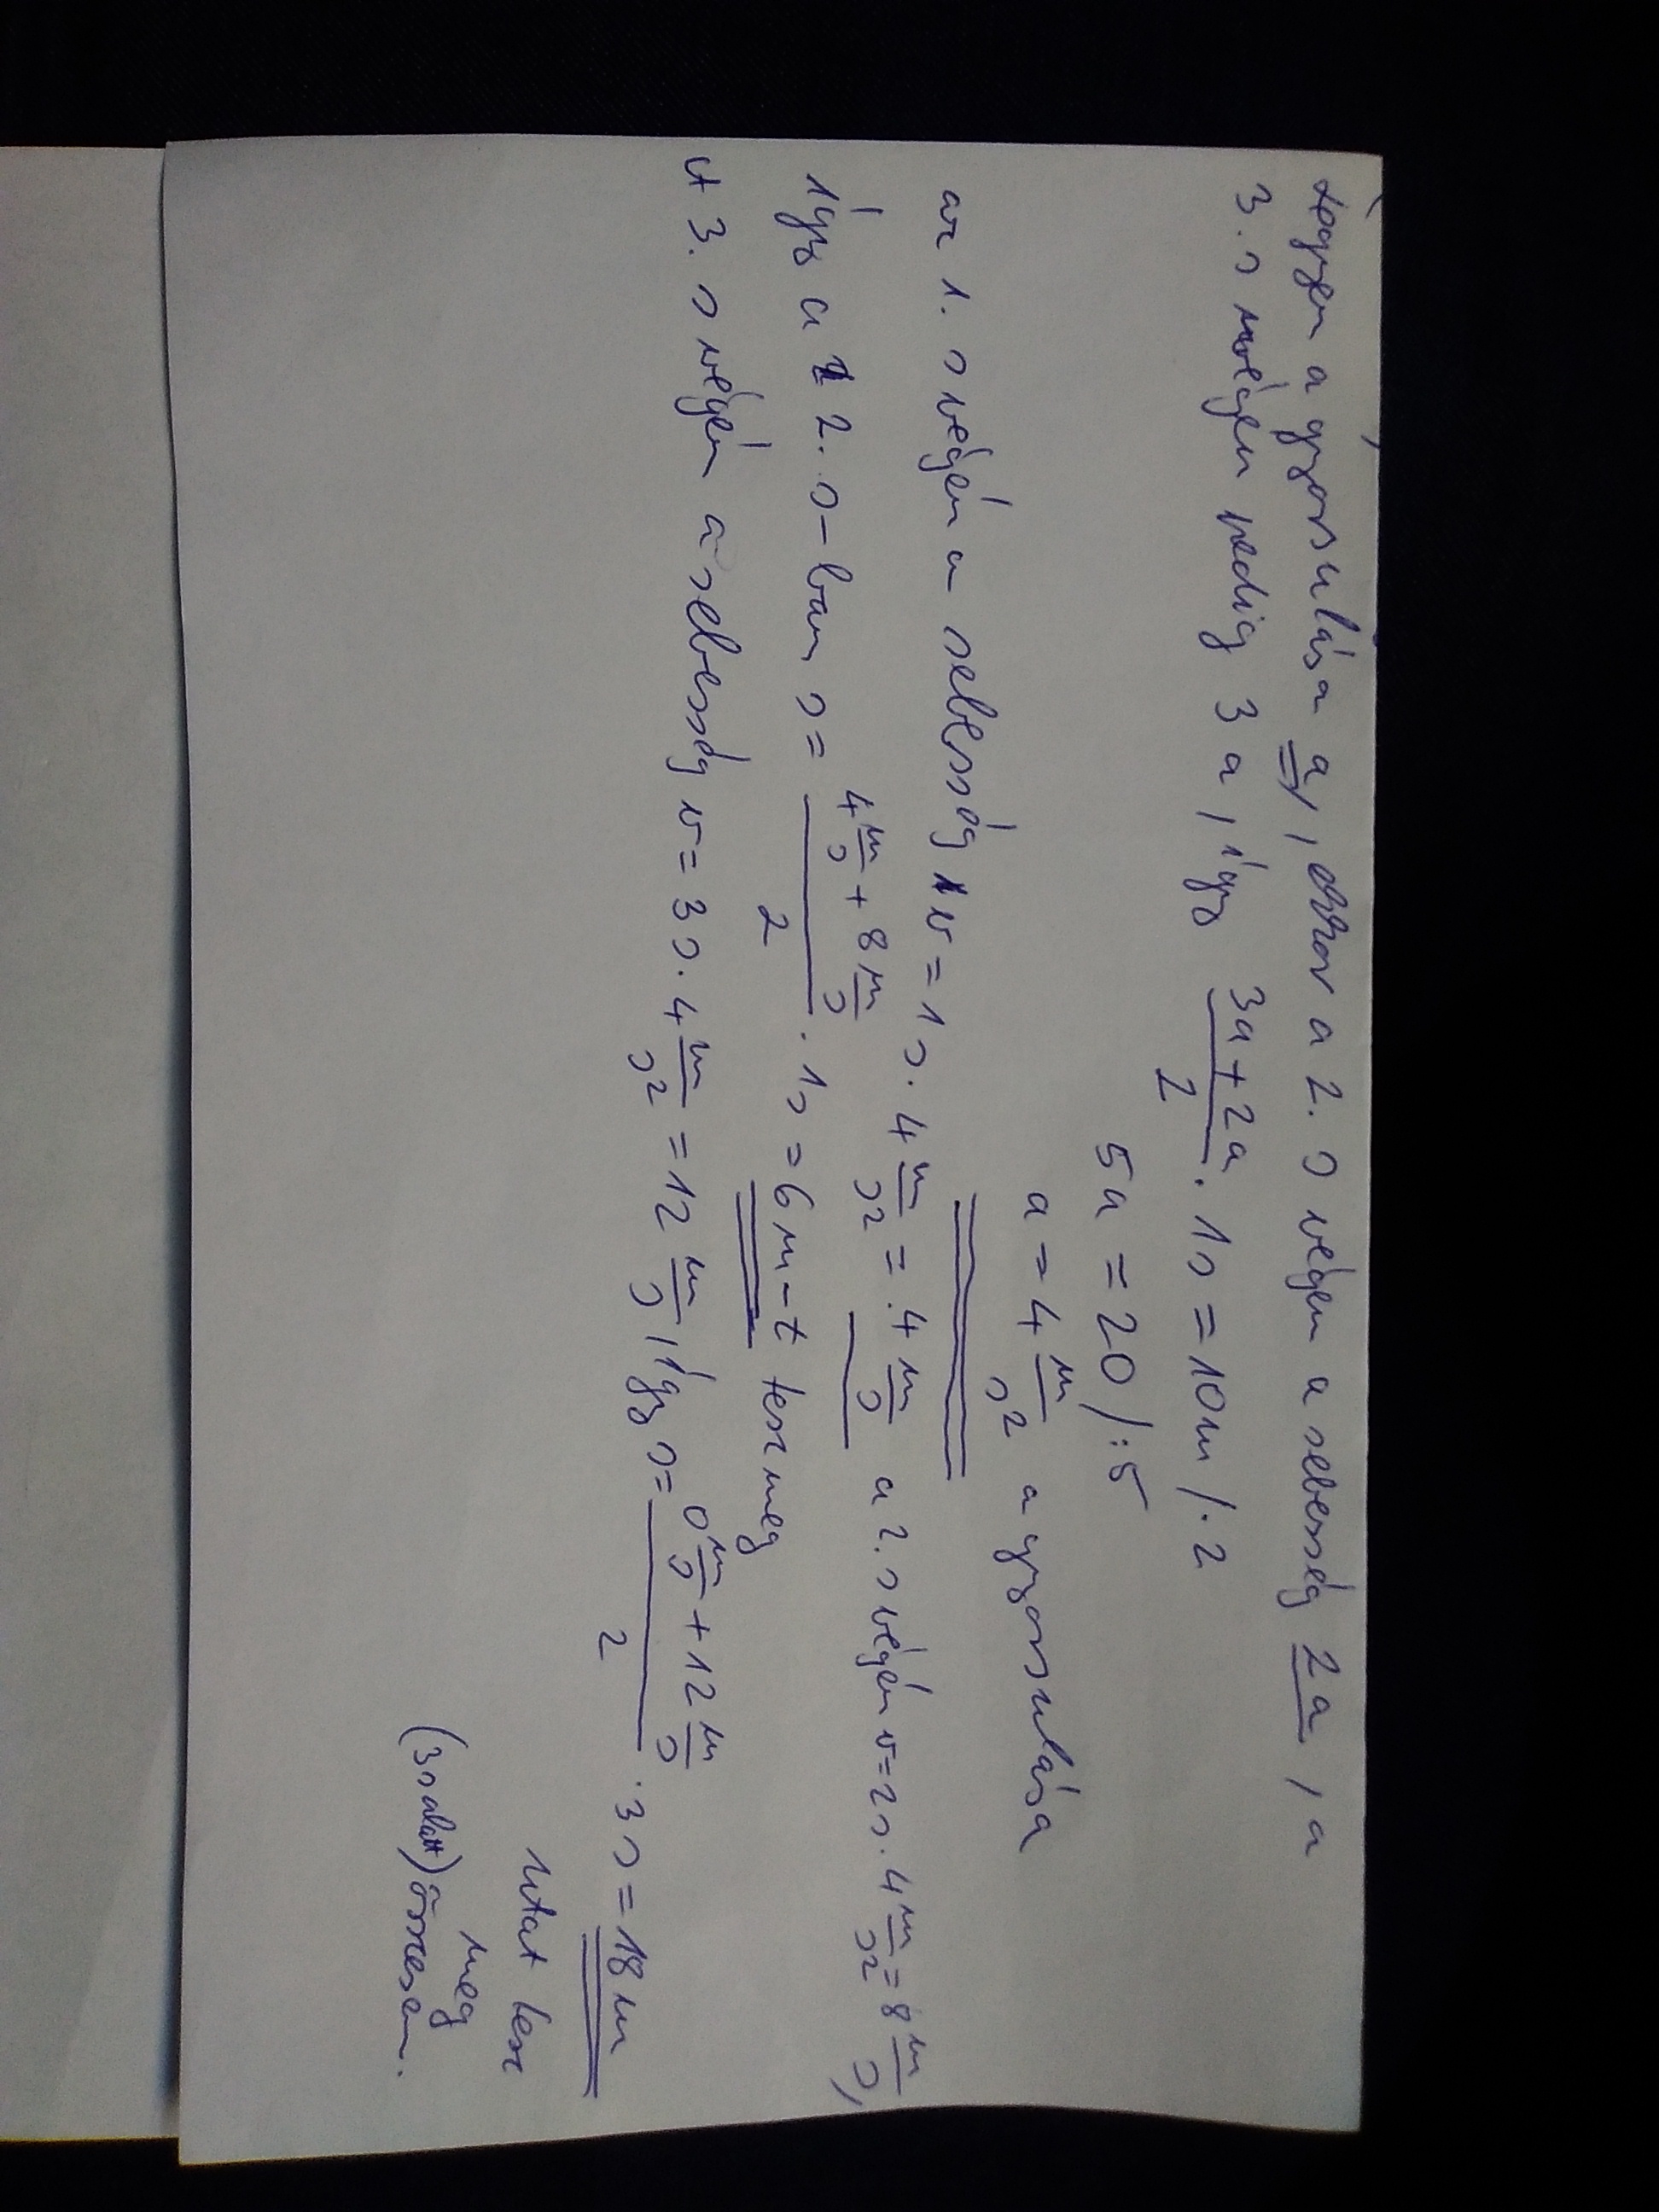 Legyen a gyorsulása a, ekkor a 2. s végén a sebesség 2a, a
3. s végén pedig 3a, így (3a+2a)/2 · 1s = 10m /·2
5a = 20 /:5
a = 4 m/s² a gyorsulása
az 1. s végén a sebesség v = 1s · 4 m/s² = 4 m/s a 2. s végén v = 2s · 4 m/s² = 8 m/s,
így a 2. s-ban s = (4 m/s + 8 m/s)/2 · 1s = 6m-t tesz meg
A 3. s végén a sebesség v = 3s · 4 m/s² = 12 m/s, így s = (0 m/s + 12 m/s)/2 · 3s = 18m
utat tesz
meg
(3s alatt) összesen.